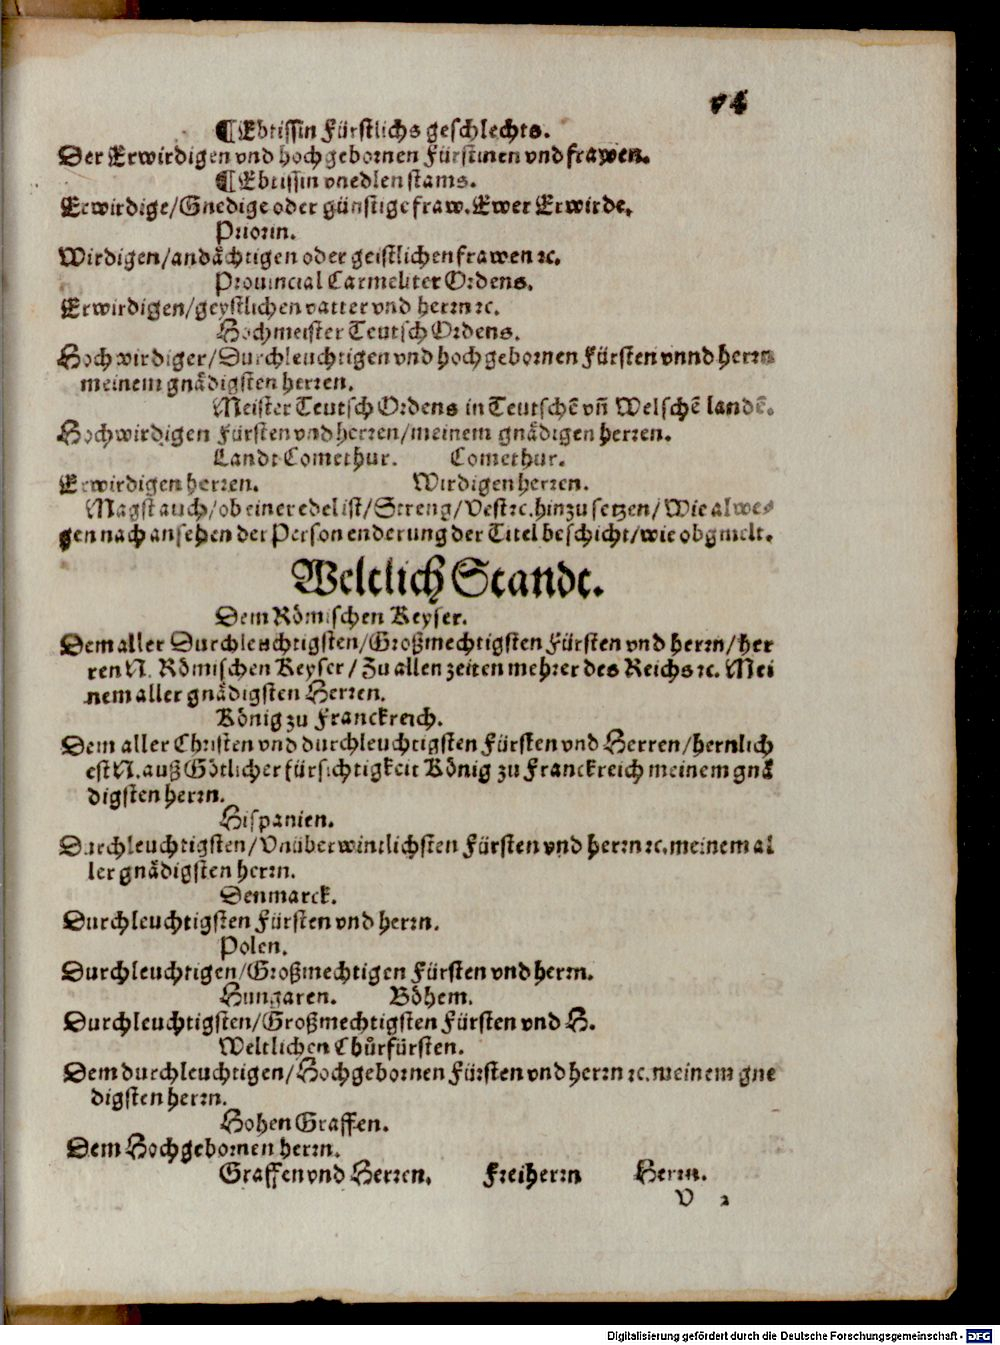 74
¶ Ebtissin Fürstlichs geschlechts.
Der Erwirdigen vnd hochgebornen Fürstinen vnd frawen.
¶ Ebtissin vnedlen stams.
Erwirdige/Gnedige oder günstige fraw. Ewer Erwirde.
Priorin.
Wirdigen/andächtigen oder geistlichen frawen ꝛc.
Prouincial Carmeliter Ordens.
Erwirdigen/geystlichen vatter vnd herrn ꝛc.
Hochmeister Teutsch Ordens.
Hochwirdiger/Durchleuchtigen vnd hochgebornen Fürsten vnnd herrn
meinem gnädigsten herren.
Meister Teutsch Ordens in Teutschē vn̄ Welschē landē.
Hochwirdigen Fürsten vnd herren/meinem gnädigen herren.
Landt Comethur. Comethur.
Erwirdigen herren. Wirdigen herren.
Magst auch/ob einer edel ist/Streng/Vest ꝛc. hinzu setzen/Wie alwe-
gen nach ansehen der Person enderung der Titel beschicht/wie obgmelt.
Weltlich Standt.
Dem Römischen Keyser.
Dem aller Durchleuchtigsten/Großmechtigsten Fürsten vnd herrn/her
ren N. Römischen Keyser/Zu allen zeiten mehrer des Reichs ꝛc. Mei
nem aller gnädigsten Herren.
König zu Franckreich.
Dem aller Christen vnd durchleuchtigsten Fürsten vnd Herren/hernlich
est N. auß Götlicher fürsichtigkeit König zu Franckreich meinem gnä
digsten herrn.
Hispanien.
Durchleuchtigsten/Vnüberwintlichsten Fürsten vnd herrn ꝛc. meinem al
ler gnädigsten herrn.
Denmarck.
Durchleuchtigsten Fürsten vnd herrn.
Polen.
Durchleuchtigen/Großmechtigen Fürsten vnd herrn.
Hungaren. Böhem.
Durchleuchtigsten/Großmechtigsten Fürsten vnd H.
Weltlichen Chůrfürsten.
Dem durchleuchtigen/Hochgebornen Fürsten vnd herrn ꝛc. meinem gne
digsten herrn.
Hohen Graffen.
Dem Hochgebornen herrn.
Graffen vnd Herren. Freiherrn Herrn.
V 2
Digitalisierung gefördert durch die Deutsche Forschungsgemeinschaft - DFG